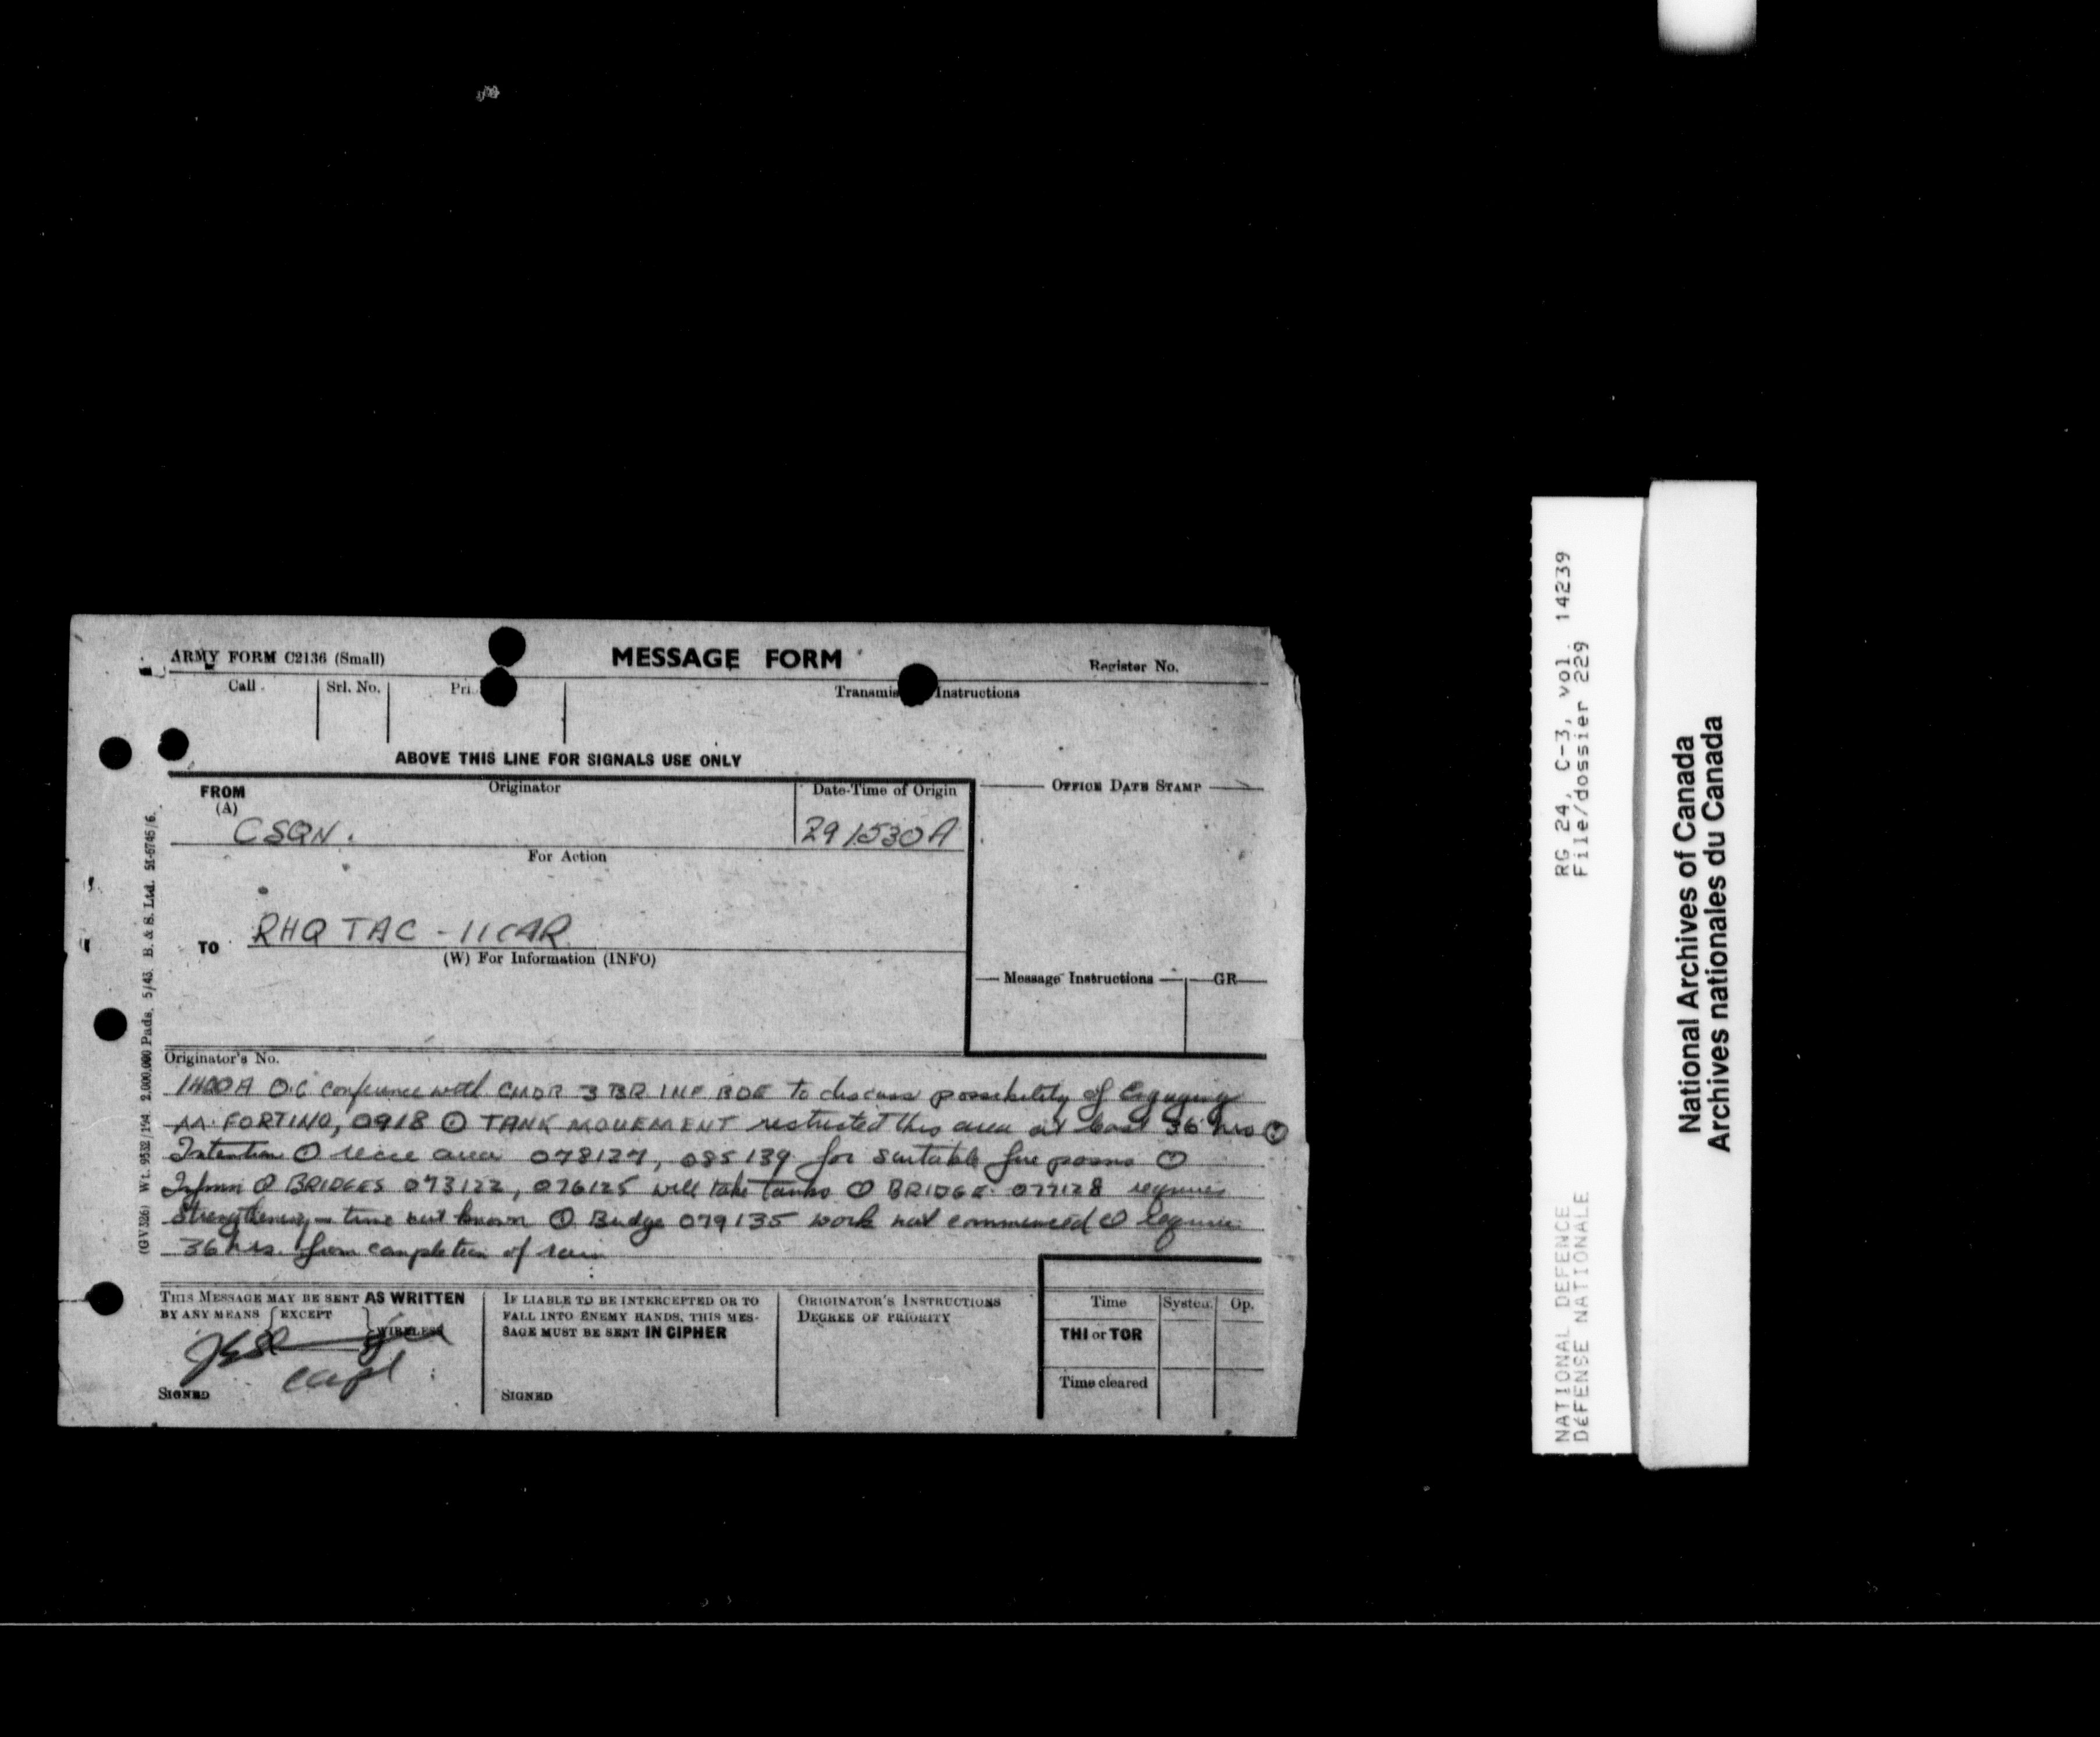 ARMY FORM C2136 (Small)
MESSAGE FORM
Register No.
Call
Srl. No.
Pri
Transmis Instructions
ABOVE THIS LINE FOR SIGNALS USE ONLY
FROM
(A)
Originator
Date-Time of Origin
OFFICE DATE STAMP
CSQN.
291530A
For Action
TO
RHQ TAC - 11CAR
(W) For Information (INFO)
Message Instructions
GR
Originator's No.
1400A O.C conference with CMDR 3 BR INF BDE to discuss possibility of Engaging
M. FORTINO, 0918 ⊙ TANK MOVEMENT restricted this area at least 36 hrs ⊙
Intention ⊙ recce area 078127, 085139 for suitable fire posns ⊙
Infmn ⊙ BRIDGES 073122, 076125 will take tanks ⊙ BRIDGE 077128 requires
Strengthening - time not known ⊙ Bridge 079135 work not commenced ⊙ require
36 hrs. from completion of
THIS MESSAGE MAY BE SENT AS WRITTEN
BY ANY MEANS EXCEPT WIRELESS
Capt
SIGNED
IF LIABLE TO BE INTERCEPTED OR TO
FALL INTO ENEMY HANDS, THIS MES-
SAGE MUST BE SENT IN CIPHER
SIGNED
ORIGINATOR'S INSTRUCTIONS
DEGREE OF PRIORITY
Time
System
Op.
THI or TOR
Time cleared
(GV326) Wt. 9532/194 2,000,000 Pads. 5/43. B. & S. Ltd. 51-6745/6.
RG 24, C-3, vol. 14239
File/dossier 229
NATIONAL DEFENCE
DÉFENSE NATIONALE
National Archives of Canada
Archives nationales du Canada